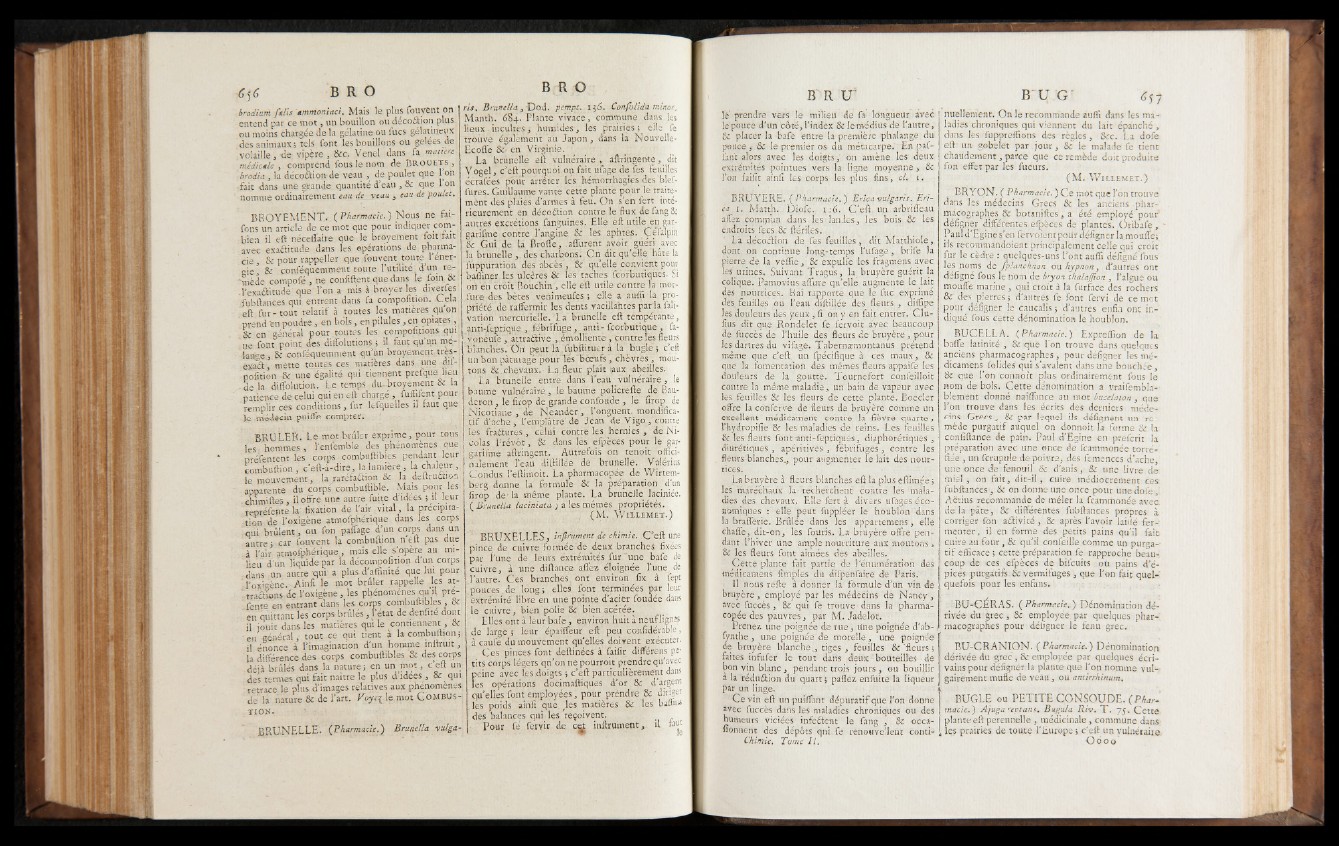 656 B R O
brodium salis ammoniaci. Mais le plus souvent on
entend par ce mot, un bouillon ou décoction plus
ou moins chargée de la gélatine ou sucs gélatineux
des animaux; tels sont les bouillons ou gelées de
volaille, de vipère, &c. Venel dans sa matière
médicale, comprend sous le nom de BROUETS,
brodia, la décoction de veau, de poulet que l'on
fait dans une grande quantité d'eau, & que l'on
nomme ordinairement eau de veau, eau de poulet.
BROYEMENT. (Pharmacie.) Nous ne fai-
sons un article de ce mot que pour indiquer com-
bien il est nécessaire que le broyement soit fait
avec exactitude dans les opérations de pharma-
cie, & pour rappeller que souvent toute l'éner-
gie, & conséquemment toute l'utilité d'un re-
mède composé, ne consistent que dans le soin &
l'exactitude que l'on a mis à broyer les diverses
substances qui entrent dans sa composition. Cela
est sur-tout relatif à toutes les matières qu'on
prend en poudre, en bols, en pilules, en opiates,
& en général pour toutes les compositions qui
ne sont point des dissolutions; il faut qu'un mé-
lange, & conséquemment qu'un broyement très-
exact, mette toutes ces matières dans une dis-
position & une égalité qui tiennent presque lieu
de la dissolution. Le temps du broyement & la
patience de celui qui en est chargé, suffisent pour
remplir ces conditions, sur lesquelles il faut que
le médecin puisse compter.
BRULER. Le mot brûler exprime, pour tous
les hommes, l'ensemble des phénomènes que
présentent les corps combustibles pendant leur
combustion, c'est-à-dire, la lumière, la chaleur,
le mouvement, la raréfaction & la destruction
apparente du corps combustible. Mais pour les
chimistes, il offre une autre suite d'idées; il leur
représente la fixation de l'air vital, la précipita-
tion de l'oxigène atmosphérique dans les corps
qui brûlent, ou son passage d'un corps dans un
autre; car souvent la combustion n'est pas due
à l'air atmosphérique, mais elle s'opère au mi-
lieu d'un liquide par la décomposition d'un corps
dans un autre qui a plus d'affinité que lui pour
l'oxigène. Ainsi le mot brûler rappelle les at-
tractions de l'oxigène, les phénomènes qu'il pré-
sente en entrant dans les corps combustibles, &
en quittant les corps brûlés, l'état de densité dont
il jouit dans les matières qui le contiennent, &
en général, tout ce qui tient à la combustion;
il énonce à l'imagination d'un homme instruit,
la différence des corps combustibles & des corps
déjà brûlés dans la nature; en un mot, c'est un
des termes qui fait naître le plus d'idées, & qui
retrace le plus d'images relatives aux phénomènes
de la nature & de l'art. Voyez le mot COMBUS-
TION.
BRUNELLE. (Pharmacie.) Brunella vulga-
B R O
ris. Brunella, Dod. pempt. 136. Consolida minor,
Manth. 684. Plante vivace, commune dans les
lieux incultes, humides, les prairies; elle se
trouve également au Japon, dans la Nouvelle-
Ecosse & en Virginie.
La brunelle est vulnéraire, astringente, dit
Vogel, c'est pourquoi on fait usage de ses feuilles
écrasées pour arrêter les hémorrhagies des bles-
sures. Guillaume vante cette plante pour le traite-
ment des plaies d'armes à feu. On s'en sert inté-
rieurement en décoction contre le flux de sang &
autres excrétions sanguines. Elle est utile en gar-
garisme contre l'angine & les aphtes. Césalpin
& Gui de la Brosse, assurent avoir guéri avec
la brunelle, des charbons. On dit qu'elle hâte la
suppuration des abcès, & qu'elle convient pour
bassiner les ulcères & les taches scorbutiques. Si
on en croit Bouchin, elle est utile contre la mor-
sure des bêtes venimeuses; elle a aussi la pro-
priété de raffermir les dents vacillantes par la sali-
vation mercurielle. La brunelle est tempérante,
anti-septique, fébrifuge, anti-scorbutique, sa-
voneuse, attractive, émolliente, contre les fleurs
blanches. On peut la substituer à la bugle; c'est
un bon pâturage pour les bœufs, chèvres, mou-
tons & chevaux. La fleur plaît aux abeilles.
La brunelle entre dans l'eau vulnéraire, le
baume vulnéraire, le baume policreste de Bau-
deron, le sirop de grande consoude, le sirop de
Nicotiane, de Néander, l'onguent mondifica-
tif d'ache, l'emplâtre de Jean de Vigo, contre
les fractures, celui contre les hernies, de Ni-
colas Prévôt, & dans les espèces pour le gar-
garisme astringent. Autrefois on tenoit offici-
nalement l'eau distillée de brunelle. Valérius
Cordus l'estimoit. La pharmacopée de Wirtem-
berg donne la formule & la préparation d'un
sirop de la même plante. La brunelle laciniée,
(Brunella laciniata) a les mêmes propriétés.
(M. WILLEMET.)
BRUXELLES, instrument de chimie. C'est une
pince de cuivre formée de deux branches fixées
par l'une de leurs extrémités sur une base de
cuivre, à une distance assez éloignée l'une de
l'autre. Ces branches ont environ six à sept
pouces de long; elles sont terminées par leur
extrémité libre en une pointe d'acier soudée dans
le cuivre, bien polie & bien acérée.
Elles ont à leur base, environ huit à neuf lignes
de large; leur épaisseur est peu considérable,
à cause du mouvement qu'elles doivent exécuter.
Ces pinces sont destinées à saisir différens pe-
tits corps légers qu'on ne pourroit prendre qu'avec
peine avec les doigts; c'est particulièrement dans
les opérations docimastiques d'or & d'argent
qu'elles sont employées, pour prendre & diriger
les poids ainsi que les matières & les bassins
des balances qui les reçoivent.
Pour se servir de cet instrument, il faut
le
B R U
le prendre vers le milieu de sa longueur avec
le pouce d'un côté, l'index & le médius de l'autre,
& placer la base entre la première phalange du
pouce, & le premier os du métacarpe. En pas-
sant alors avec les doigts, on amène les deux
extrémités pointues vers la ligne moyenne, &
l'on saisit ainsi les corps les plus fins, cl. 1.
BRUYERE. (Pharmacie.) Erica vulgaris. Eri-
ca 1. Matth. Diosc. 116. C'est un arbrisseau
assez commun dans les landes, les bois & les
endroits secs & stériles.
La décoction de ses feuilles, dit Matthiole,
dont on continue long-temps l'usage, brise la
pierre de la vessie, & expulse les fragmens avec
les urines. Suivant Tragus, la bruyère guérit la
colique. Pamovius assure qu'elle augmente le lait
des nourrices. Rai rapporte que le suc exprimé
des feuilles ou l'eau distillée des fleurs, dissipe
les douleurs des yeux, si on y en fait entrer. Clu-
sius dit que Rondelet se servoit avec beaucoup
de succès de l'huile des fleurs de bruyère, pour
les dartres du visage. Tabernæmontanus prétend
même que c'est un spécifique à ces maux, &
que la fomentation des mêmes fleurs appaise les
douleurs de la goutte. Tournefort conseilloit
contre la même maladie, un bain de vapeur avec
les feuilles & les fleurs de cette plante. Boecler
offre la conserve de fleurs de bruyère comme un
excellent médicament contre la fièvre quarte,
l'hydropisie & les maladies de reins. Les feuilles
& les fleurs sont anti-septiques, diaphorétiques,
diurétiques, apéritives, fébrifuges, contre les
fleurs blanches, pour augmenter le lait des nour-
rices.
La bruyère à fleurs blanches est la plus estimée;
les maréchaux la recherchent contre les mala-
dies des chevaux. Elle sert à divers usages éco-
nomiques: elle peut suppléer le houblon dans
la brasserie. Brûlée dans les appartemens, elle
chasse, dit-on, les souris. La bruyère offre pen-
dant l'hiver une ample nourriture aux moutons,
& les fleurs sont aimées des abeilles.
Cette plante fait partie de l'énumération des
médicamens simples du dispensaire de Paris.
Il nous reste à donner la formule d'un vin de
bruyère, employé par les médecins de Nancy,
avec succès, & qui se trouve dans la pharma-
copée des pauvres, par M. Jadelot.
Prenez une poignée de rue, une poignée d'ab-
synthe, une poignée de morelle, une poignée
de bruyère blanche, tiges, feuilles & fleurs;
faites infuser le tout dans deux bouteilles de
bon vin blanc, pendant trois jours, ou bouillir
à la réduction du quart; passez ensuite la liqueur
par un linge.
Ce vin est un puissant dépuratif que l'on donne
avec succès dans les maladies chroniques ou des
humeurs viciées infectent le sang, & occa-
sionnent des dépôts qui se renouvellent conti-
Chimie. Tome II.
B U G 657
nuellement. On le recommande aussi dans les ma-
ladies chroniques qui viennent du lait épanché,
dans les suppressions des règles, &c. La dose
est un gobelet par jour, & le malade se tient
chaudement, parce que ce remède doit produire
son effet par les sueurs.
(M. WILLEMET.)
BRYON. (Pharmacie.) Ce mot que l'on trouve
dans les médecins Grecs & les anciens phar-
macographes & botanistes, a été employé pour
désigner différentes espèces de plantes. Oribase,
Paul d'Egine s'en servoient pour désigner la mousse;
ils recommandoient principalement celle qui croit
sur le cèdre: quelques-uns l'ont aussi désigné sous
les noms de splanchnon ou hypnon, d'autres ont
désigné sous le nom de bryon thalassion, l'algue ou
mousse marine, qui croit à la surface des rochers
& des pierres; d'autres se sont servi de ce mot
pour désigner le caucalis; d'autres enfin ont in-
diqué sous cette dénomination le houblon.
BUCELLA. (Pharmacie.) Expression de la
basse latinité, & que l'on trouve dans quelques
anciens pharmacographes, pour désigner les mé-
dicamens solides qui s'avalent dans une bouchée,
& que l'on connoît plus ordinairement sous le
nom de bols. Cette dénomination a vraisembla-
blement donné naissance au mot bucelaton, que
l'on trouve dans les écrits des derniers méde-
cins Grecs, & par lequel ils désignent un re-
mède purgatif auquel on donnoit la forme & la
consistance de pain. Paul d'Egine en prescrit la
préparation avec une once de scammonée torré-
fiée, un scrupule de poivre, des semences d'ache,
une once de fenouil & d'anis, & une livre de
miel, on fait, dit-il, cuire médiocrement ces
substances, & on donne une once pour une dose.
Aëtius recommande de mêler la scammonée avec
de la pâte, & différentes substances propres à
corriger son activité, & après l'avoir laissé fer-
menter, il en forme des petits pains qu'il fait
cuire au four, & qu'il conseille comme un purga-
tif efficace: cette préparation se rapproche beau-
coup de ces espèces de biscuits ou pains d'é-
pices purgatifs & vermifuges, que l'on fait quel-
quefois pour les enfans.
BU-CÉRAS. (Pharmacie.) Dénomination dé-
rivée du grec, & employée par quelques phar-
macographes pour désigner le fenu grec.
BU-CRANION. (Pharmacie.) Dénomination
dérivée du grec, & employée par quelques écri-
vains pour désigner la plante que l'on nomme vul-
gairement mufle de veau, ou antirrhinum.
BUGLE ou PETITE CONSOUDE. (Phar-
macie.) Ajuga reptans. Bugula Riv. T. 75. Cette
plante est perennelle, médicinale, commune dans
les prairies de toute l'Europe; c'est un vulnéraire
O o o o